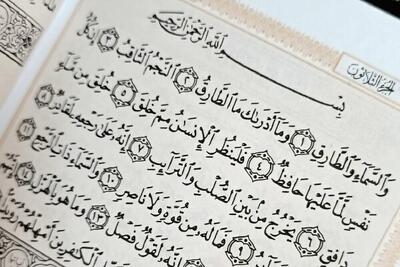 الجزء الثلاثون
بِسْمِ اللَّهِ الرَّحْمَٰنِ الرَّحِيمِ
وَالسَّمَاءِ وَالطَّارِقِ ١ وَمَا أَدْرَىٰكَ مَا الطَّارِقُ ٢ النَّجْمُ الثَّاقِبُ ٣ إِن كُلُّ
نَفْسٍ لَّمَّا عَلَيْهَا حَافِظٌ ٤ فَلْيَنظُرِ الْإِنسَٰنُ مِمَّ خُلِقَ ٥ خُلِقَ مِن مَّاءٍ
دَافِقٍ ٦ يَخْرُجُ مِن بَيْنِ الصُّلْبِ وَالتَّرَائِبِ ٧ إِنَّهُ عَلَىٰ رَجْعِهِ لَقَادِرٌ
٩ فَمَا لَهُ مِن قُوَّةٍ وَلَا نَاصِرٍ ١٠ وَالسَّمَاءِ ذَاتِ الرَّجْعِ ١١
إِنَّهُ لَقَوْلٌ فَصْلٌ ١٣ وَمَا هُوَ بِالْهَزْلِ ١٤
الْكَٰفِرِينَ أَمْهِلْهُمْ رُوَيْدًا